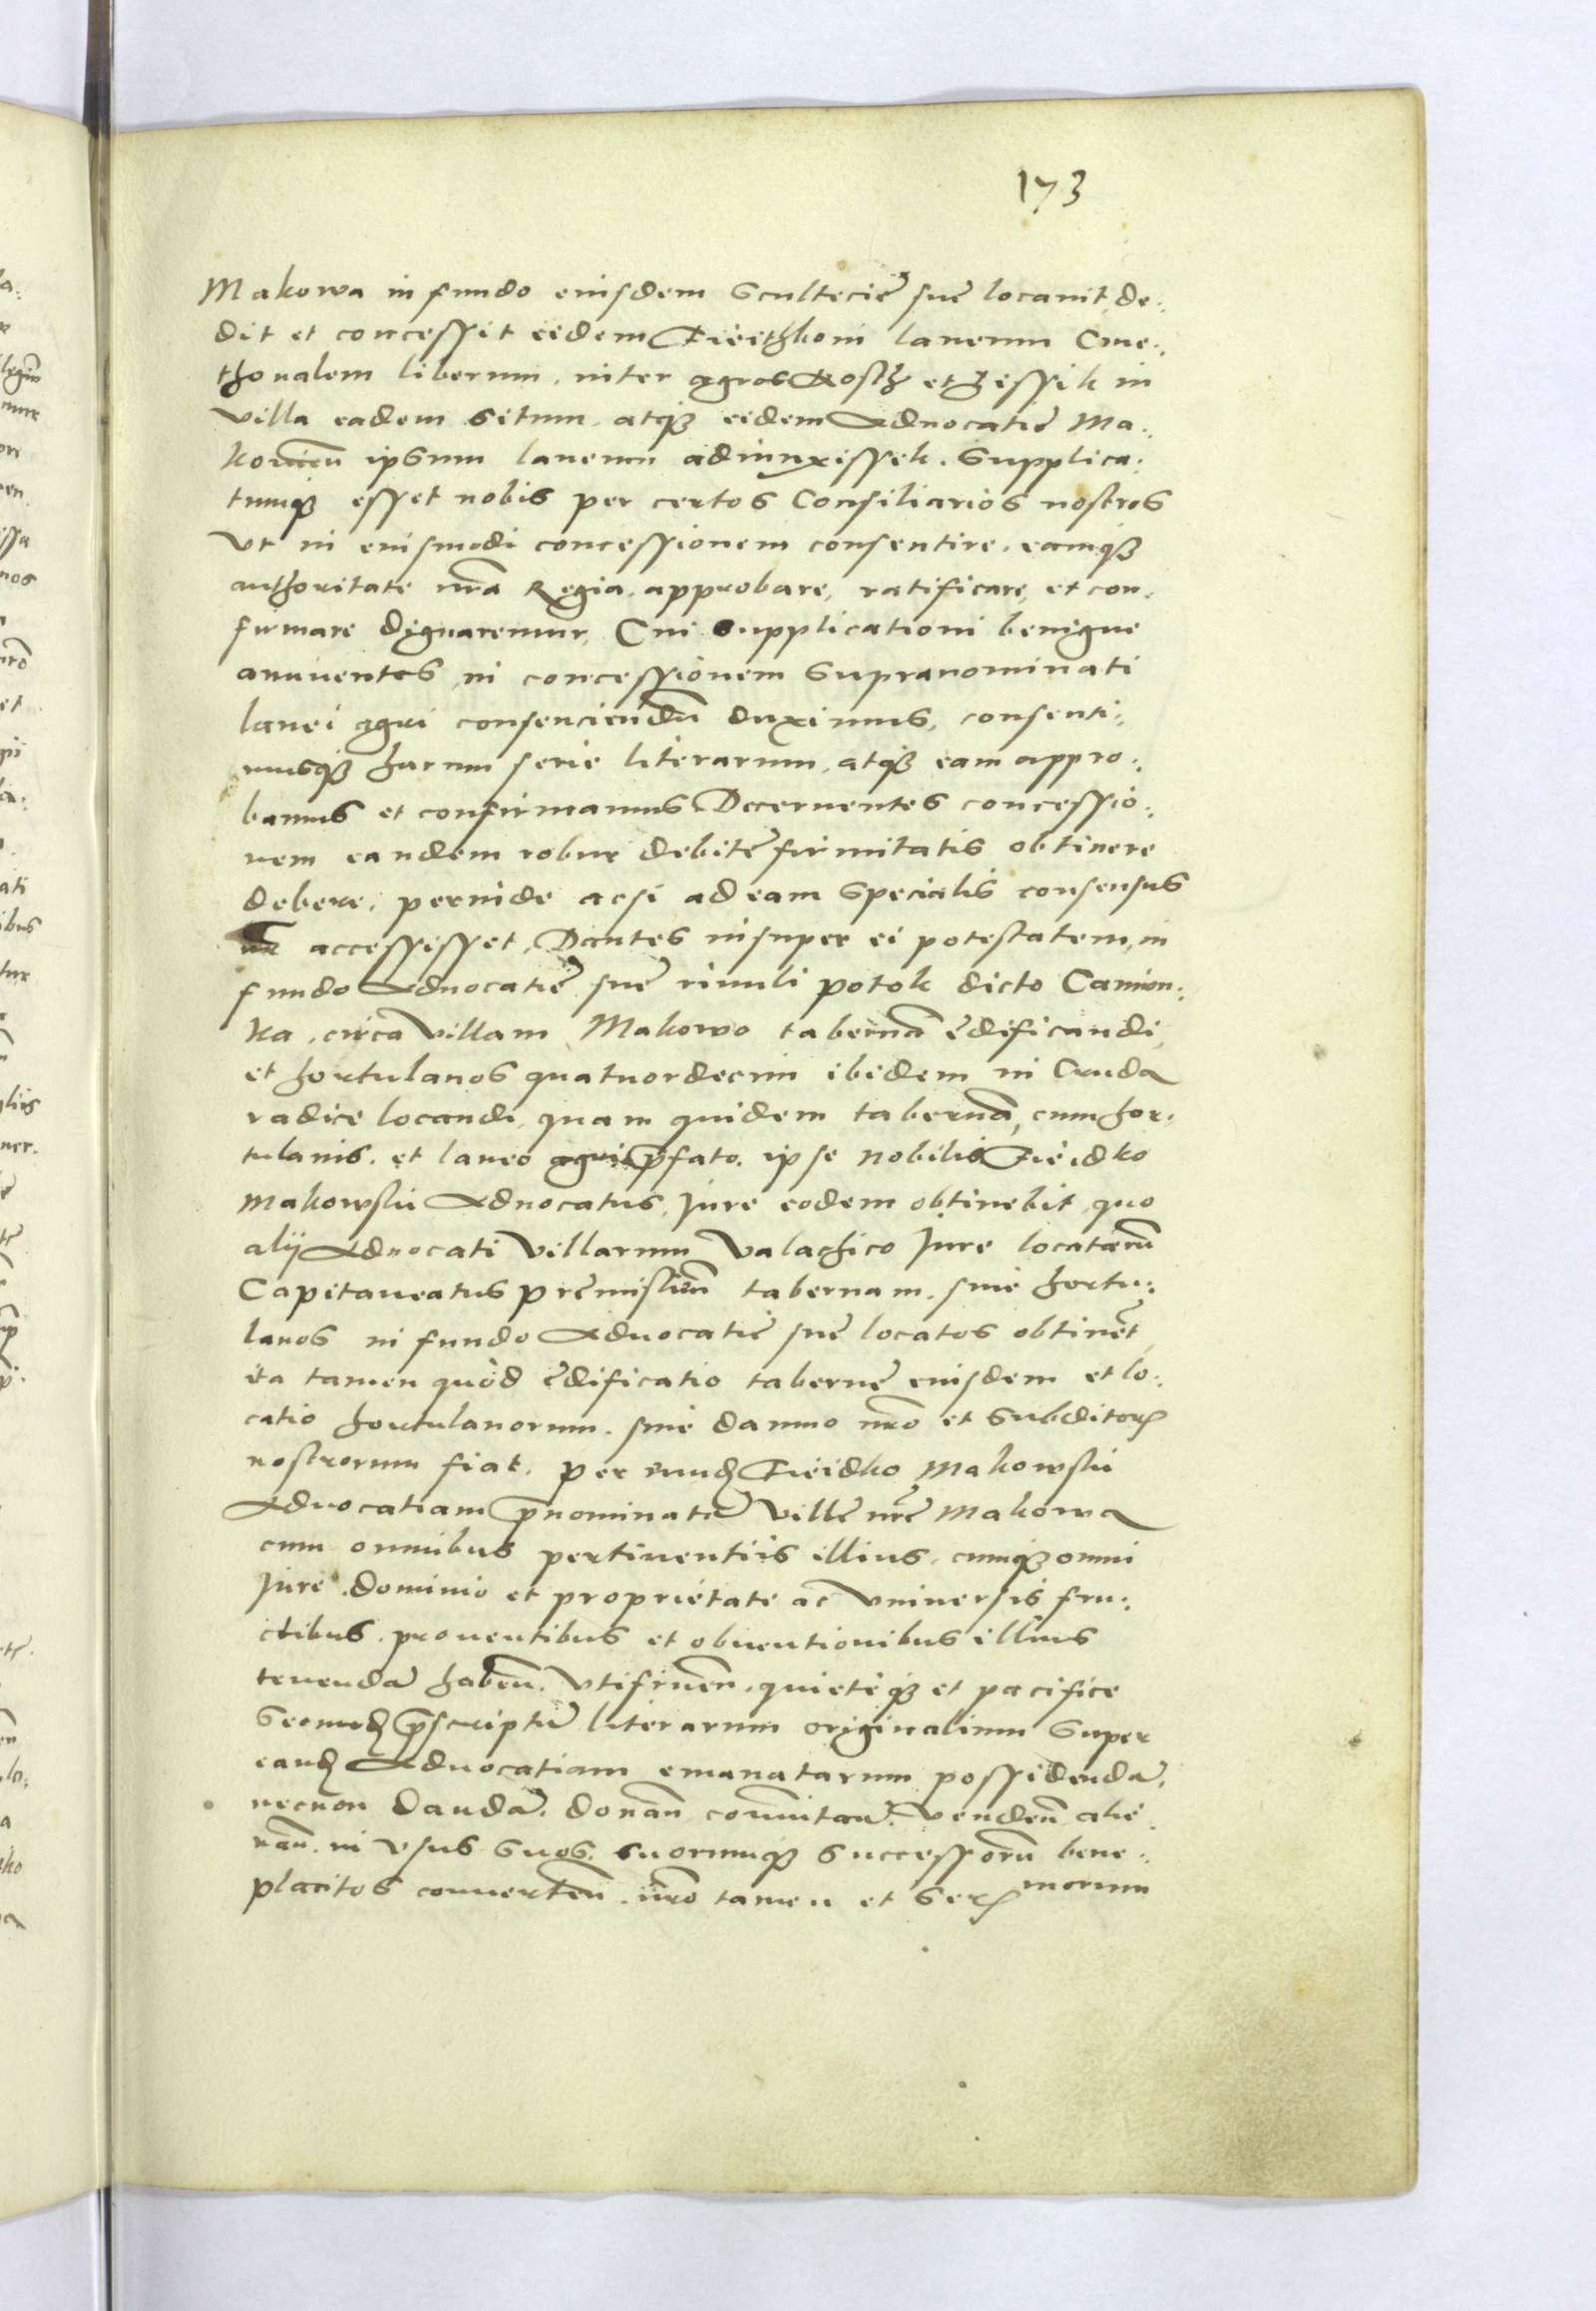 173
Makowa in fundo eiusdem Scultecię suę locauit, de:
dit et concessit eidem Fieithkoni laneum Cme:
thonalem liberum, inter agros Kosth et Hissik in
villa eadem situm, atq3 eidem Aduocatię Ma:
kowien ipsum laneum adiunxisset. Supplica:
tumq3 esset nobis per certos Consiliarios nostros
vt in eiusmodi concessionem consentire, eamq3
authoritate nr̃a Regia, approbare, ratificare, et con:
firmare dignaremur, Cui supplicationi benigne
annuentes, in concessionem supranominati
lanei agri consenciendũ duximus, consenti:
musq3 harum serie literarum, atq3 eam appro:
bamus et confirmamus. Decernentes concessio:
nem eandem robur debitę firmitatis obtinere
debere, perinde acsi ad eam specialis consensus
nr̃ accessisset, Dantes insuper ei potestatem, in
fundo Aduocatię suę riuuli potok dicto Camion:
ka, circa villam Makowo tabernã ędificandi,
et hortulanos quatuordecim ibidem in Cruda
radice locandi, quam quidem tabernã, cum hor:
tulanis, et laneo agri p̃fato, ipse nobilis Fieidko
Makowski Aduocatus, Jure eodem obtinebit, quo
alij Aduocati villarum valachico Jure locatarũ
Capitaneatus pręmislien̄ tabernam, siue hortu:
lanos in fundo Aduocatię suę locatos obtinẽt,
ita tamen quòd ędificatio tabernę eiusdem et lo:
catio hortulanorum, sine damno nr̃o et subditor
nostrorum fiat, per eund Fieidko Makowski
Aduocatiam p̃nominatę villę nr̃ę Makowa
cum omnibus pertinentiis illius, cumq3 omni
Jure, dominio et proprietate ac vniuersis fru:
ctibus, prouentibus et obuentionibus illius
tenenda habeñ, vtifrueñ, quietéq3 et pacifice
secund p̃scriptũ literarum originalium super
eand Aduocatiam emanatarum possidenda,
necnon danda, donañ, comutañ, vendeñ, alie:
nañ, in vsus suos, suorumq3 successorũ bene:
placitos conuerteñ, nr̃o tamen et Ser morum